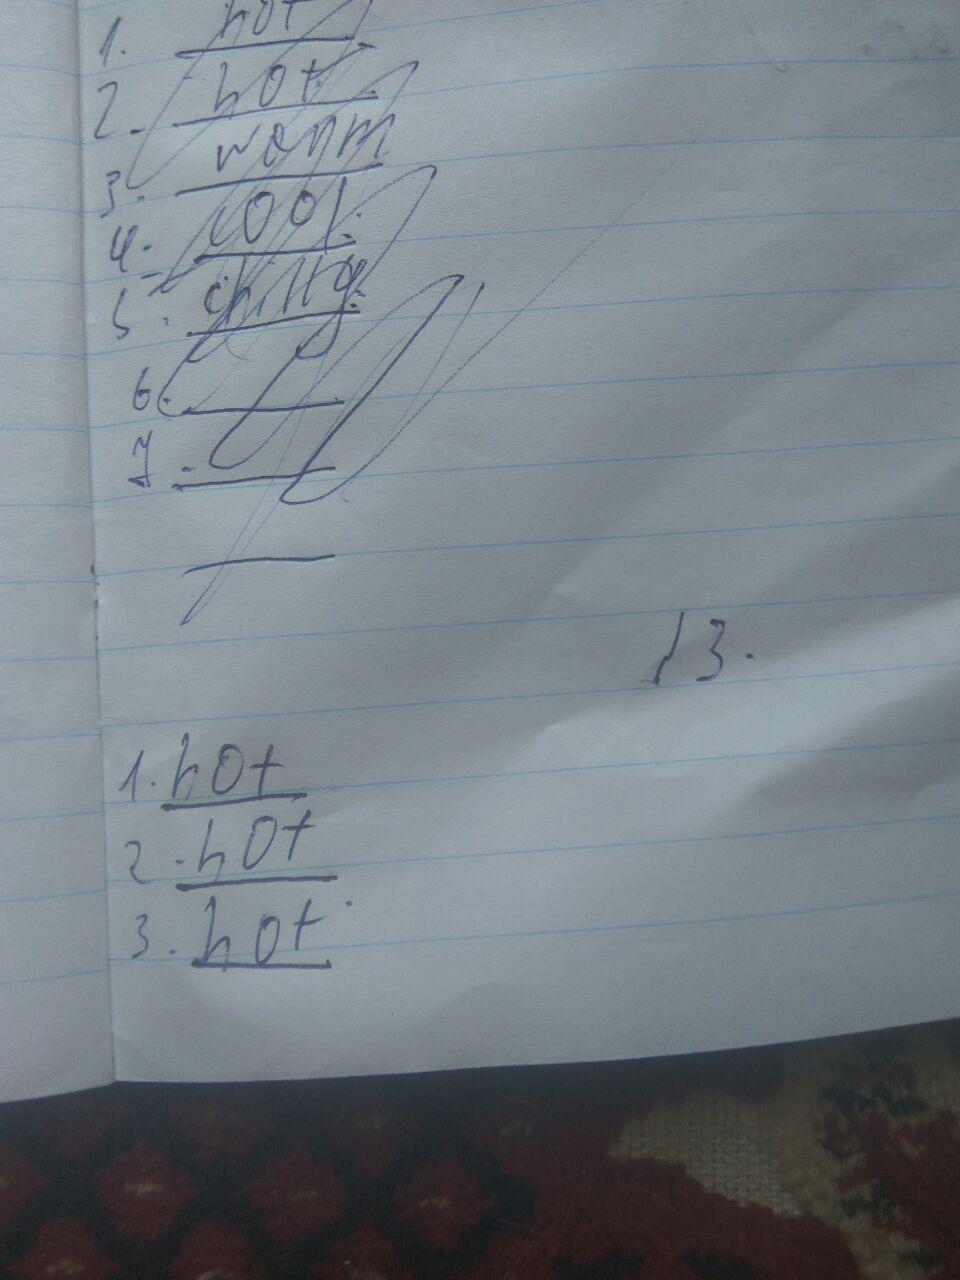 1. hot
2. hot
3. warm
4. cool.
5. chilly.
6.
7.
13.
1. hot
2. hot
3. hot